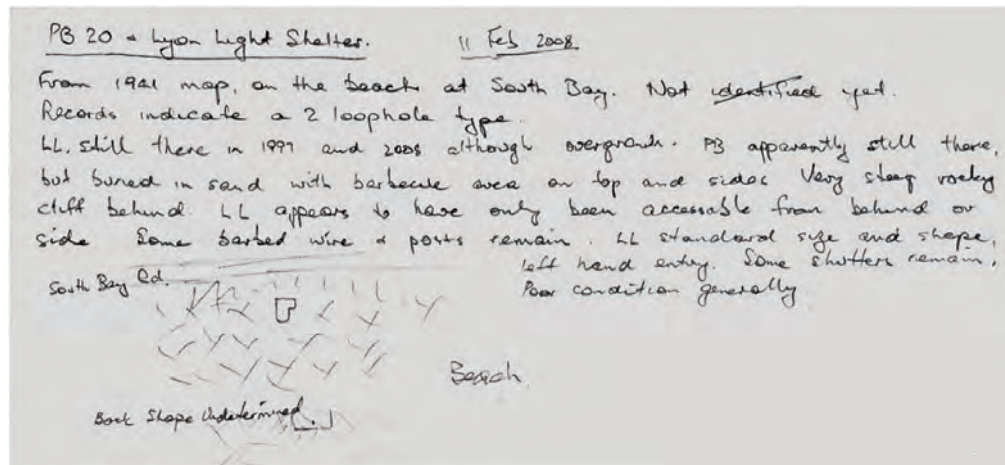 PB 20 & Lyon Light Shelter. 11 Feb 2008
From 1941 map, on the beach at South Bay. Not identified yet.
Records indicate a 2 loophole type.
LL. still there in 1997 and 2008 although overgrown. PB apparently still there,
but buried in sand with barbecue area on top and sides Very steep rocky
cliff behind. LL appears to have only been accessable from behind or
side Some barbed wire & posts remain. LL standard size and shape,
left hand entry. Some shutters remain,
Poor condition generally
South Bay Rd.
Beach
Back Shape Undetermined.